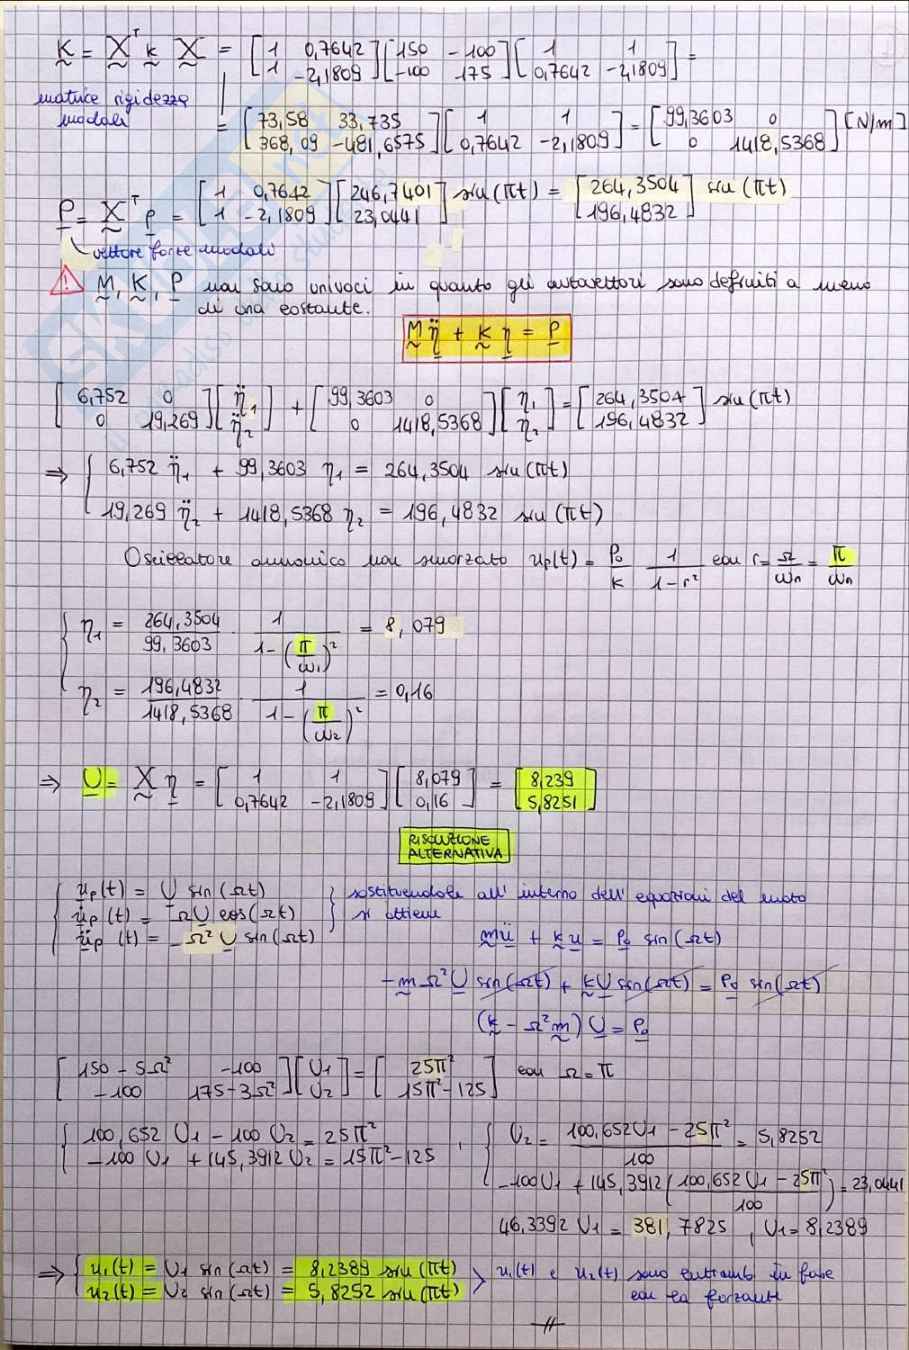 K = Xᵀ k X = [1 0,7642; 1 -2,1809] [150 -100; -100 175] [1 1; 0,7642 -2,1809] =
matrice rigidezza modali
= [73,58 33,735; 368,09 -481,6575] [1 1; 0,7642 -2,1809] = [99,3603 0; 0 1418,5368] [N/m]
P = Xᵀ p = [1 0,7642; 1 -2,1809] [246,7401; 23,0441] sin(πt) = [264,3504; 196,4832] sin(πt)
vettore forze modali
! M, K, P non sono univoci in quanto gli autovettori sono definiti a meno
di una costante.
M η̈ + K η = P
[6,752 0; 0 19,269] [η̈₁; η̈₂] + [99,3603 0; 0 1418,5368] [η₁; η₂] = [264,3504; 196,4832] sin(πt)
⇒ { 6,752 η̈₁ + 99,3603 η₁ = 264,3504 sin(πt)
19,269 η̈₂ + 1418,5368 η₂ = 196,4832 sin(πt)
Oscillatore armonico non smorzato up(t) = P₀/k 1/(1-r²) con r = Ω/ωn = π/ωn
{ η₁ = 264,3504/99,3603 · 1/(1-(π/ω₁)²) = 8,079
η₂ = 196,4832/1418,5368 · 1/(1-(π/ω₂)²) = 0,16
⇒ U = X η = [1 1; 0,7642 -2,1809] [8,079; 0,16] = [8,239; 5,8251]
RISOLUZIONE
ALTERNATIVA
{ up(t) = U sin(Ωt) } sostituendole all'interno dell'equazioni del moto
u̇p(t) = ΩU cos(Ωt) si ottiene
üp(t) = -Ω² U sin(Ωt) mü + k u = P₀ sin(Ωt)
-m Ω² U sin(Ωt) + k U sin(Ωt) = P₀ sin(Ωt)
(k - Ω² m) U = P₀
[150 - 5Ω² -100; -100 175-3Ω²] [U1; U2] = [25π²; 15π²-125] con Ω=π
{ 100,652 U1 - 100 U2 = 25π² , { U2 = (100,652U1 - 25π²)/100 = 5,8252
-100 U1 + 145,3912 U2 = 15π²-125
-100U1 + 145,3912 ((100,652 U1 - 25π²)/100) = 23,0441
46,3392 U1 = 381,7825 , U1 = 8,2389
⇒ { u1(t) = U1 sin(Ωt) = 8,2389 sin(πt) > u1(t) e u2(t) sono entrambi in fase
u2(t) = U2 sin(Ωt) = 5,8252 sin(πt) con la forzante